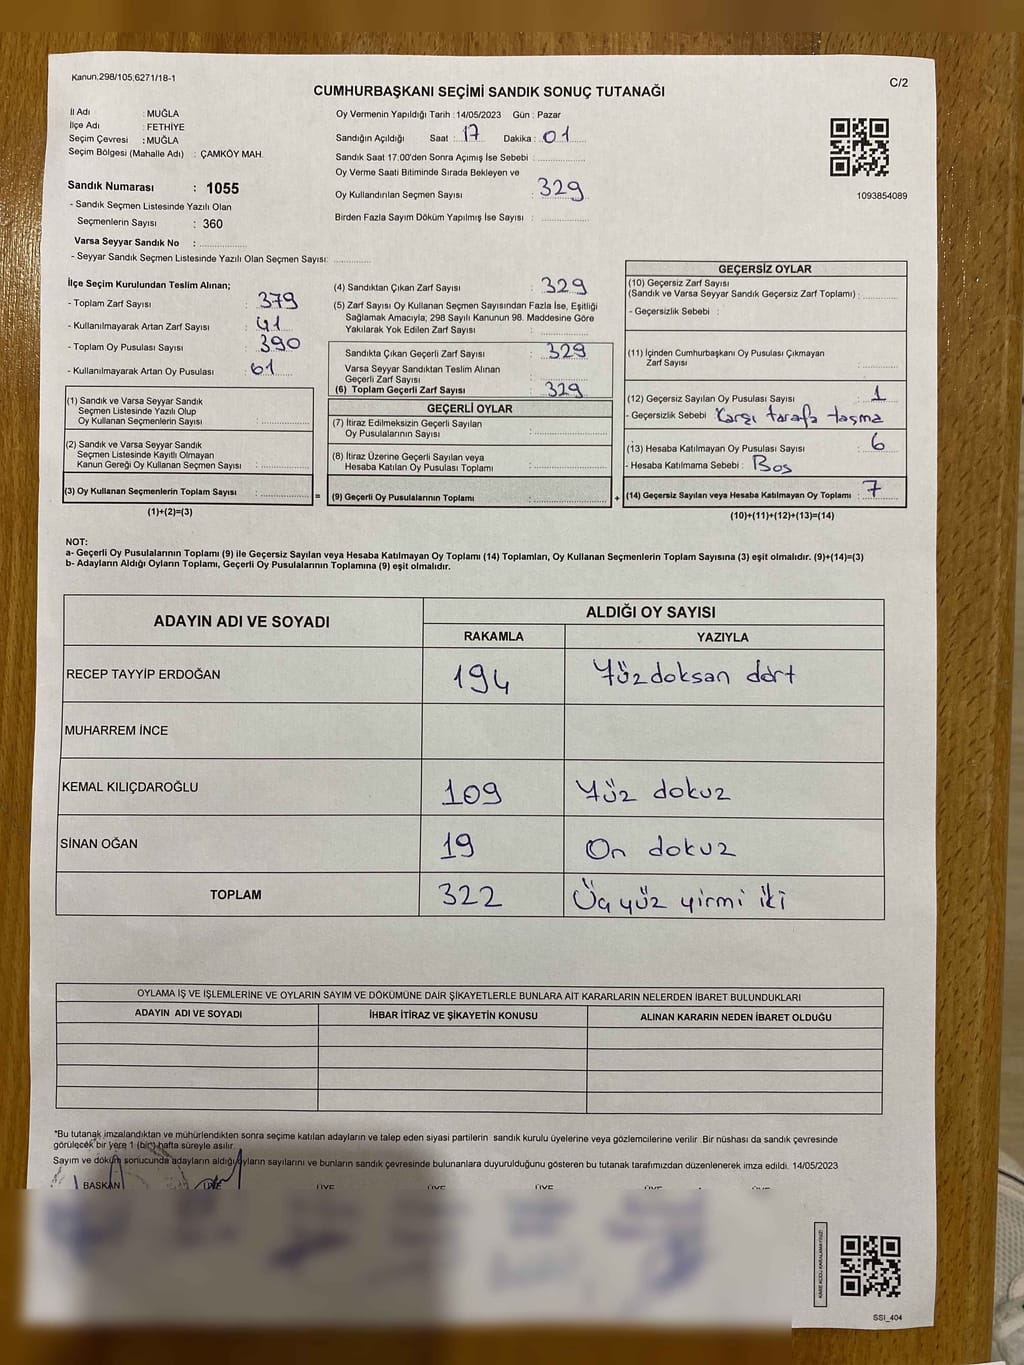 Kanun,298/105,6271/18-1
C/2
CUMHURBAŞKANI SEÇİMİ SANDIK SONUÇ TUTANAĞI
İl Adı : MUĞLA
İlçe Adı : FETHİYE
Seçim Çevresi : MUĞLA
Seçim Bölgesi (Mahalle Adı) : ÇAMKÖY MAH.
Sandık Numarası : 1055
- Sandık Seçmen Listesinde Yazılı Olan
Seçmenlerin Sayısı : 360
Varsa Seyyar Sandık No :
- Seyyar Sandık Seçmen Listesinde Yazılı Olan Seçmen Sayısı:
Oy Vermenin Yapıldığı Tarih : 14/05/2023 Gün : Pazar
Sandığın Açıldığı Saat : 17 Dakika : 01
Sandık Saat 17:00'den Sonra Açımış İse Sebebi :
Oy Verme Saati Bitiminde Sırada Bekleyen ve
Oy Kullandırılan Seçmen Sayısı : 329
Birden Fazla Sayım Döküm Yapılmış İse Sayısı :
1093854089
İlçe Seçim Kurulundan Teslim Alınan;
- Toplam Zarf Sayısı : 379
- Kullanılmayarak Artan Zarf Sayısı : 41
- Toplam Oy Pusulası Sayısı : 390
- Kullanılmayarak Artan Oy Pusulası : 61
(1) Sandık ve Varsa Seyyar Sandık
Seçmen Listesinde Yazılı Olup
Oy Kullanan Seçmenlerin Sayısı :
(2) Sandık ve Varsa Seyyar Sandık
Seçmen Listesinde Kayıtlı Olmayan
Kanun Gereği Oy Kullanan Seçmen Sayısı :
(3) Oy Kullanan Seçmenlerin Toplam Sayısı : =
(1)+(2)=(3)
(4) Sandıktan Çıkan Zarf Sayısı : 329
(5) Zarf Sayısı Oy Kullanan Seçmen Sayısından Fazla İse, Eşitliği
Sağlamak Amacıyla; 298 Sayılı Kanunun 98. Maddesine Göre
Yakılarak Yok Edilen Zarf Sayısı :
Sandıkta Çıkan Geçerli Zarf Sayısı : 329
Varsa Seyyar Sandıktan Teslim Alınan
Geçerli Zarf Sayısı :
(6) Toplam Geçerli Zarf Sayısı : 329
GEÇERLİ OYLAR
(7) İtiraz Edilmeksizin Geçerli Sayılan
Oy Pusulalarının Sayısı :
(8) İtiraz Üzerine Geçerli Sayılan veya
Hesaba Katılan Oy Pusulası Toplamı :
(9) Geçerli Oy Pusulalarının Toplamı : +
GEÇERSİZ OYLAR
(10) Geçersiz Zarf Sayısı
(Sandık ve Varsa Seyyar Sandık Geçersiz Zarf Toplamı) :
- Geçersizlik Sebebi :
(11) İçinden Cumhurbaşkanı Oy Pusulası Çıkmayan
Zarf Sayısı :
(12) Geçersiz Sayılan Oy Pusulası Sayısı : 1
- Geçersizlik Sebebi : Karşı tarafa taşma
(13) Hesaba Katılmayan Oy Pusulası Sayısı : 6
- Hesaba Katılmama Sebebi : Boş
(14) Geçersiz Sayılan veya Hesaba Katılmayan Oy Toplamı : 7
(10)+(11)+(12)+(13)=(14)
NOT:
a- Geçerli Oy Pusulalarının Toplamı (9) ile Geçersiz Sayılan veya Hesaba Katılmayan Oy Toplamı (14) Toplamları, Oy Kullanan Seçmenlerin Toplam Sayısına (3) eşit olmalıdır. (9)+(14)=(3)
b- Adayların Aldığı Oyların Toplamı, Geçerli Oy Pusulalarının Toplamına (9) eşit olmalıdır.
ADAYIN ADI VE SOYADI ALDIĞI OY SAYISI
RAKAMLA YAZIYLA
RECEP TAYYİP ERDOĞAN 194 Yüzdoksan dört
MUHARREM İNCE
KEMAL KILIÇDAROĞLU 109 Yüz dokuz
SİNAN OĞAN 19 On dokuz
TOPLAM 322 Üç yüz yirmi iki
OYLAMA İŞ VE İŞLEMLERİNE VE OYLARIN SAYIM VE DÖKÜMÜNE DAİR ŞİKAYETLERLE BUNLARA AİT KARARLARIN NELERDEN İBARET BULUNDUKLARI
ADAYIN ADI VE SOYADI İHBAR İTİRAZ VE ŞİKAYETİN KONUSU ALINAN KARARIN NEDEN İBARET OLDUĞU
*Bu tutanak imzalandıktan ve mühürlendikten sonra seçime katılan adayların ve talep eden siyasi partilerin sandık kurulu üyelerine veya gözlemcilerine verilir. Bir nüshası da sandık çevresinde
görülecek bir yere 1 (bir) hafta süreyle asılır.
Sayım ve döküm sonucunda adayların aldığı oyların sayılarını ve bunların sandık çevresinde bulunanlara duyurulduğunu gösteren bu tutanak tarafımızdan düzenlenerek imza edildi. 14/05/2023
BAŞKAN ÜYE ÜYE ÜYE ÜYE ÜYE ÜYE
SSI_404